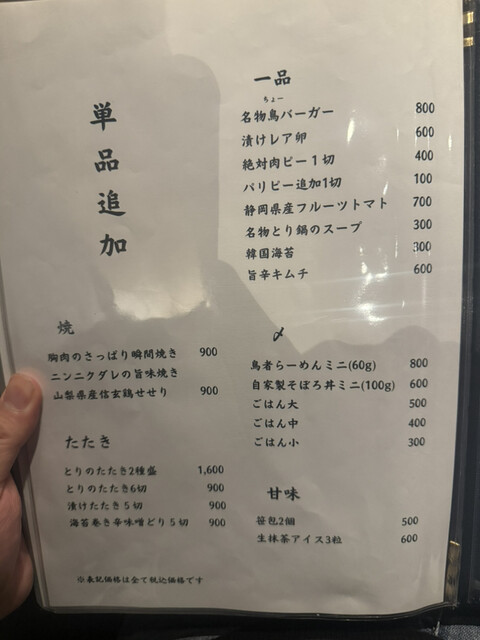 単品追加
一品
ちょー
名物鳥バーガー 800
漬けレア卵 600
絶対肉ピー1切 400
パリピー追加1切 100
静岡県産フルーツトマト 700
名物とり鍋のスープ 300
韓国海苔 300
旨辛キムチ 600
焼
胸肉のさっぱり瞬間焼き 900
ニンニクダレの旨味焼き
山梨県産信玄鶏せせり 900
たたき
とりのたたき2種盛 1,600
とりのたたき6切 900
漬けたたき5切 900
海苔巻き辛味噌どり5切 900
〆
鳥者らーめんミニ(60g) 800
自家製そぼろ丼ミニ(100g) 600
ごはん大 500
ごはん中 400
ごはん小 300
甘味
笹包2個 500
生抹茶アイス3粒 600
※表記価格は全て税込価格です